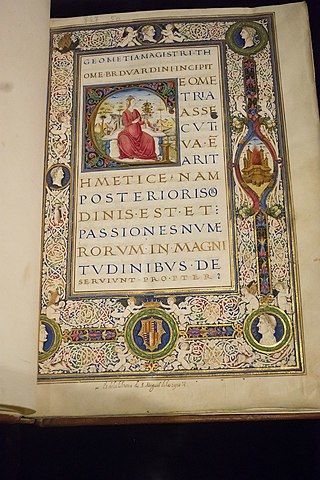 GEOMETIA·MAGISTRI·TH
OME·BRDVARDINI·INCIPIT
EOME
TRIA
ASSE
CVT
VA·Ē
ARIT
HMETICE·NAM
POSTERIORIS
DINIS·EST·ET:
PASSIONES·NVME
RORVM·IN·MAGNI
TVDINIBVS·DE
SERVIVNT·PROPTER